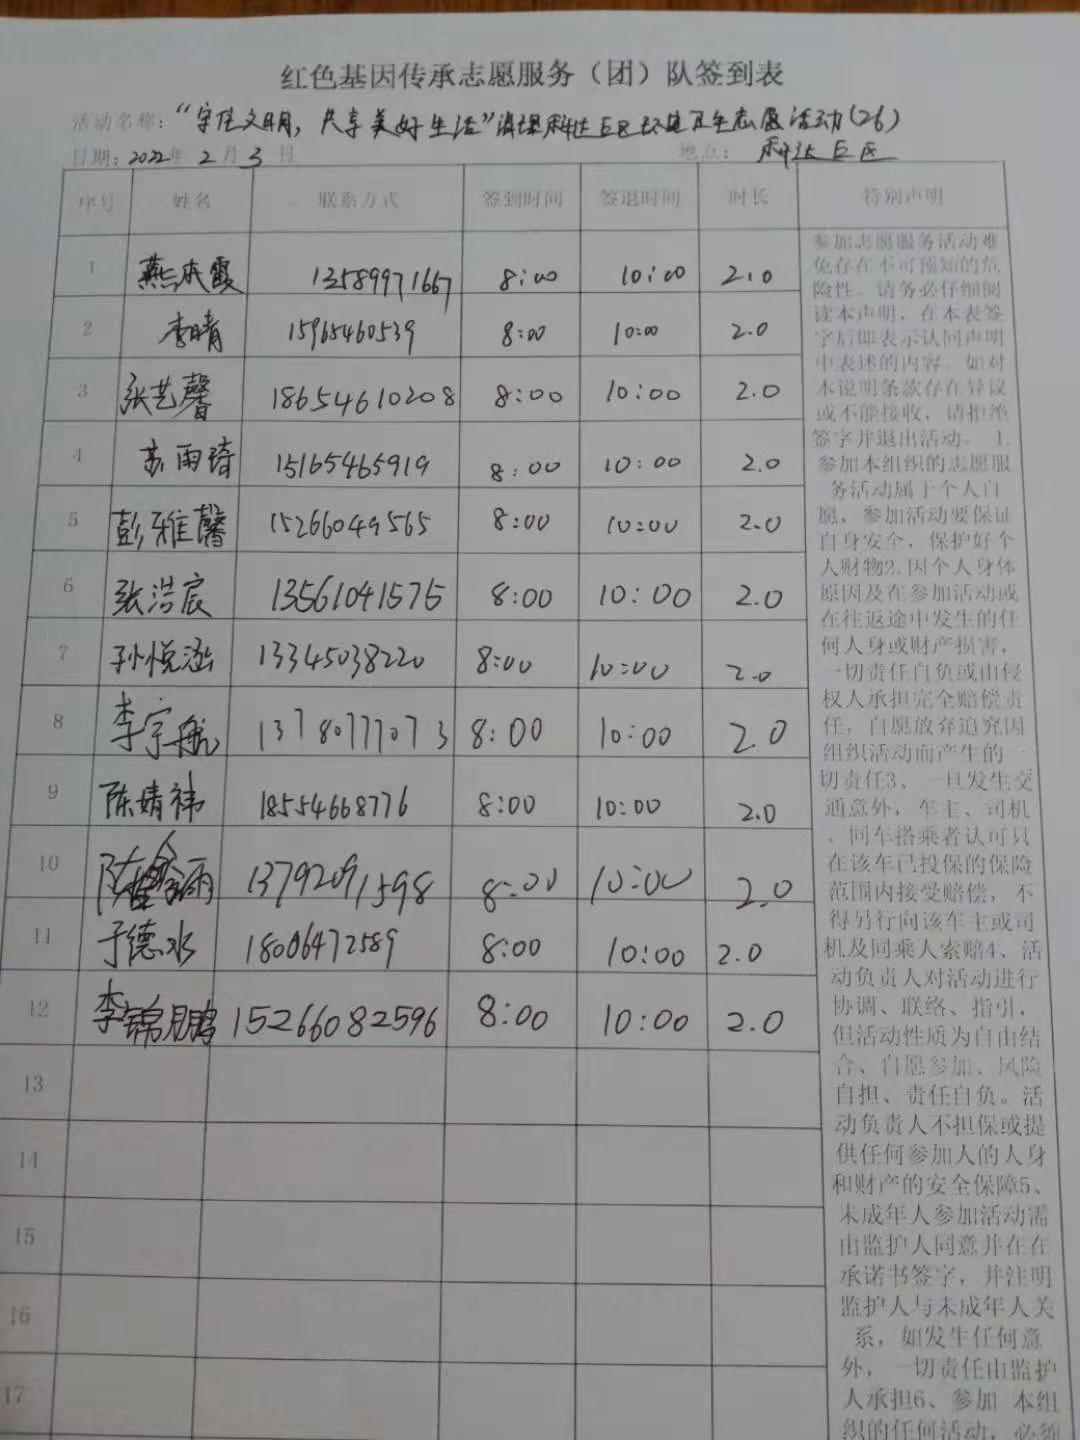 红色基因传承志愿服务（团）队签到表
活动名称：“守住文明，共享美好生活”清理科达B区环境卫生志愿活动(26)
日期：2022年 2 月 3 日 地点： 科达B区
序号 姓名 联系方式 签到时间 签退时间 时长 特别声明
1 燕本霞 13589971667 8:00 10:00 2.0
2 李晴 15965460539 8:00 10:00 2.0
3 张艺馨 18654610208 8:00 10:00 2.0
4 苏雨琦 15165465919 8:00 10:00 2.0
5 彭雅馨 15266049565 8:00 10:00 2.0
6 张浩宸 13561041575 8:00 10:00 2.0
7 孙悦涵 13345038220 8:00 10:00 2.0
8 李宗航 13780777073 8:00 10:00 2.0
9 陈婧祎 18554668776 8:00 10:00 2.0
10 陈 雨 13792091598 8:00 10:00 2.0
11 于德水 18006472589 8:00 10:00 2.0
12 李锦鹏 15266082596 8:00 10:00 2.0
13
14
15
16
17
参加志愿服务活动难
免存在不可预知的危
险性。请务必仔细阅
读本声明，在本表签
字后即表示认同声明
中表述的内容。如对
本说明条款存在异议
或不能接收，请拒绝
签字并退出活动。 1.
参加本组织的志愿服
务活动属于个人自
愿，参加活动要保证
自身安全，保护好个
人财物2.因个人身体
原因及在参加活动或
在往返途中发生的任
何人身或财产损害，
一切责任自负或由侵
权人承担完全赔偿责
任，自愿放弃追究因
组织活动而产生的一
切责任3、一旦发生交
通意外，车主、司机
、同车搭乘者认可只
在该车已投保的保险
范围内接受赔偿，不
得另行向该车主或司
机及同乘人索赔4、活
动负责人对活动进行
协调、联络、指引，
但活动性质为自由结
合、自愿参加、风险
自担、责任自负。活
动负责人不担保或提
供任何参加人的人身
和财产的安全保障5、
未成年人参加活动需
由监护人同意并在在
承诺书签字，并注明
监护人与未成年人关
系，如发生任何意
外，一切责任由监护
人承担6、参加 本组
织的任何活动，必须